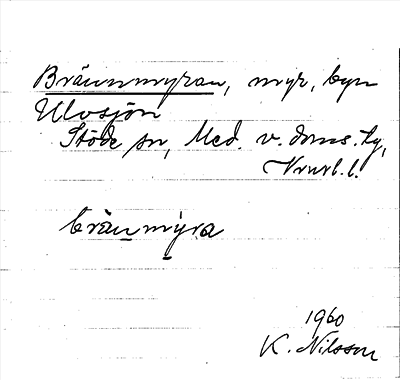 Brännmyran, myr, byn
Ulvsjön
Stöde sn, Med. v. doms. tg,
Vnrl. l.
bränmýra
1960
K. Nilsson